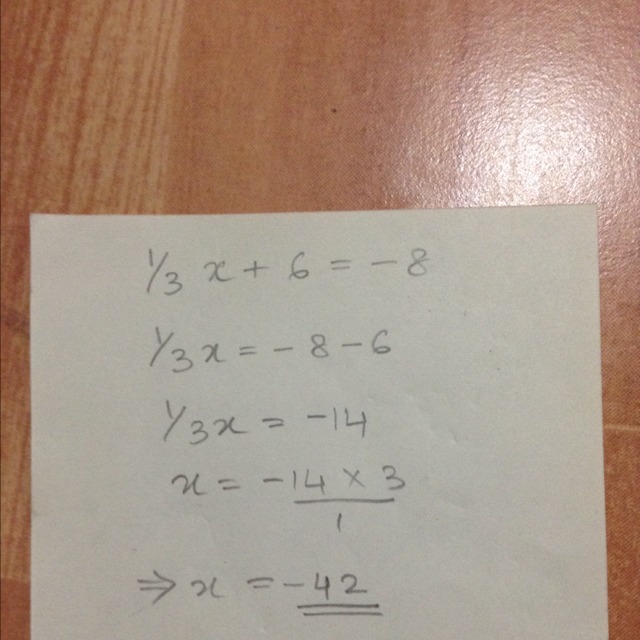 1/3 x + 6 = -8
1/3x = -8-6
1/3x = -14
x = -14 × 3
1
⇒ x = -42